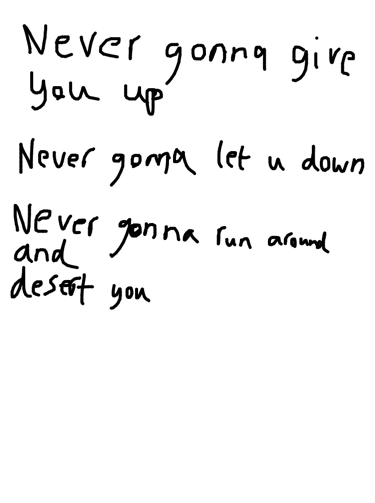 Never gonna give
you up
Never gonna let u down
Never gonna run around
and
desert you